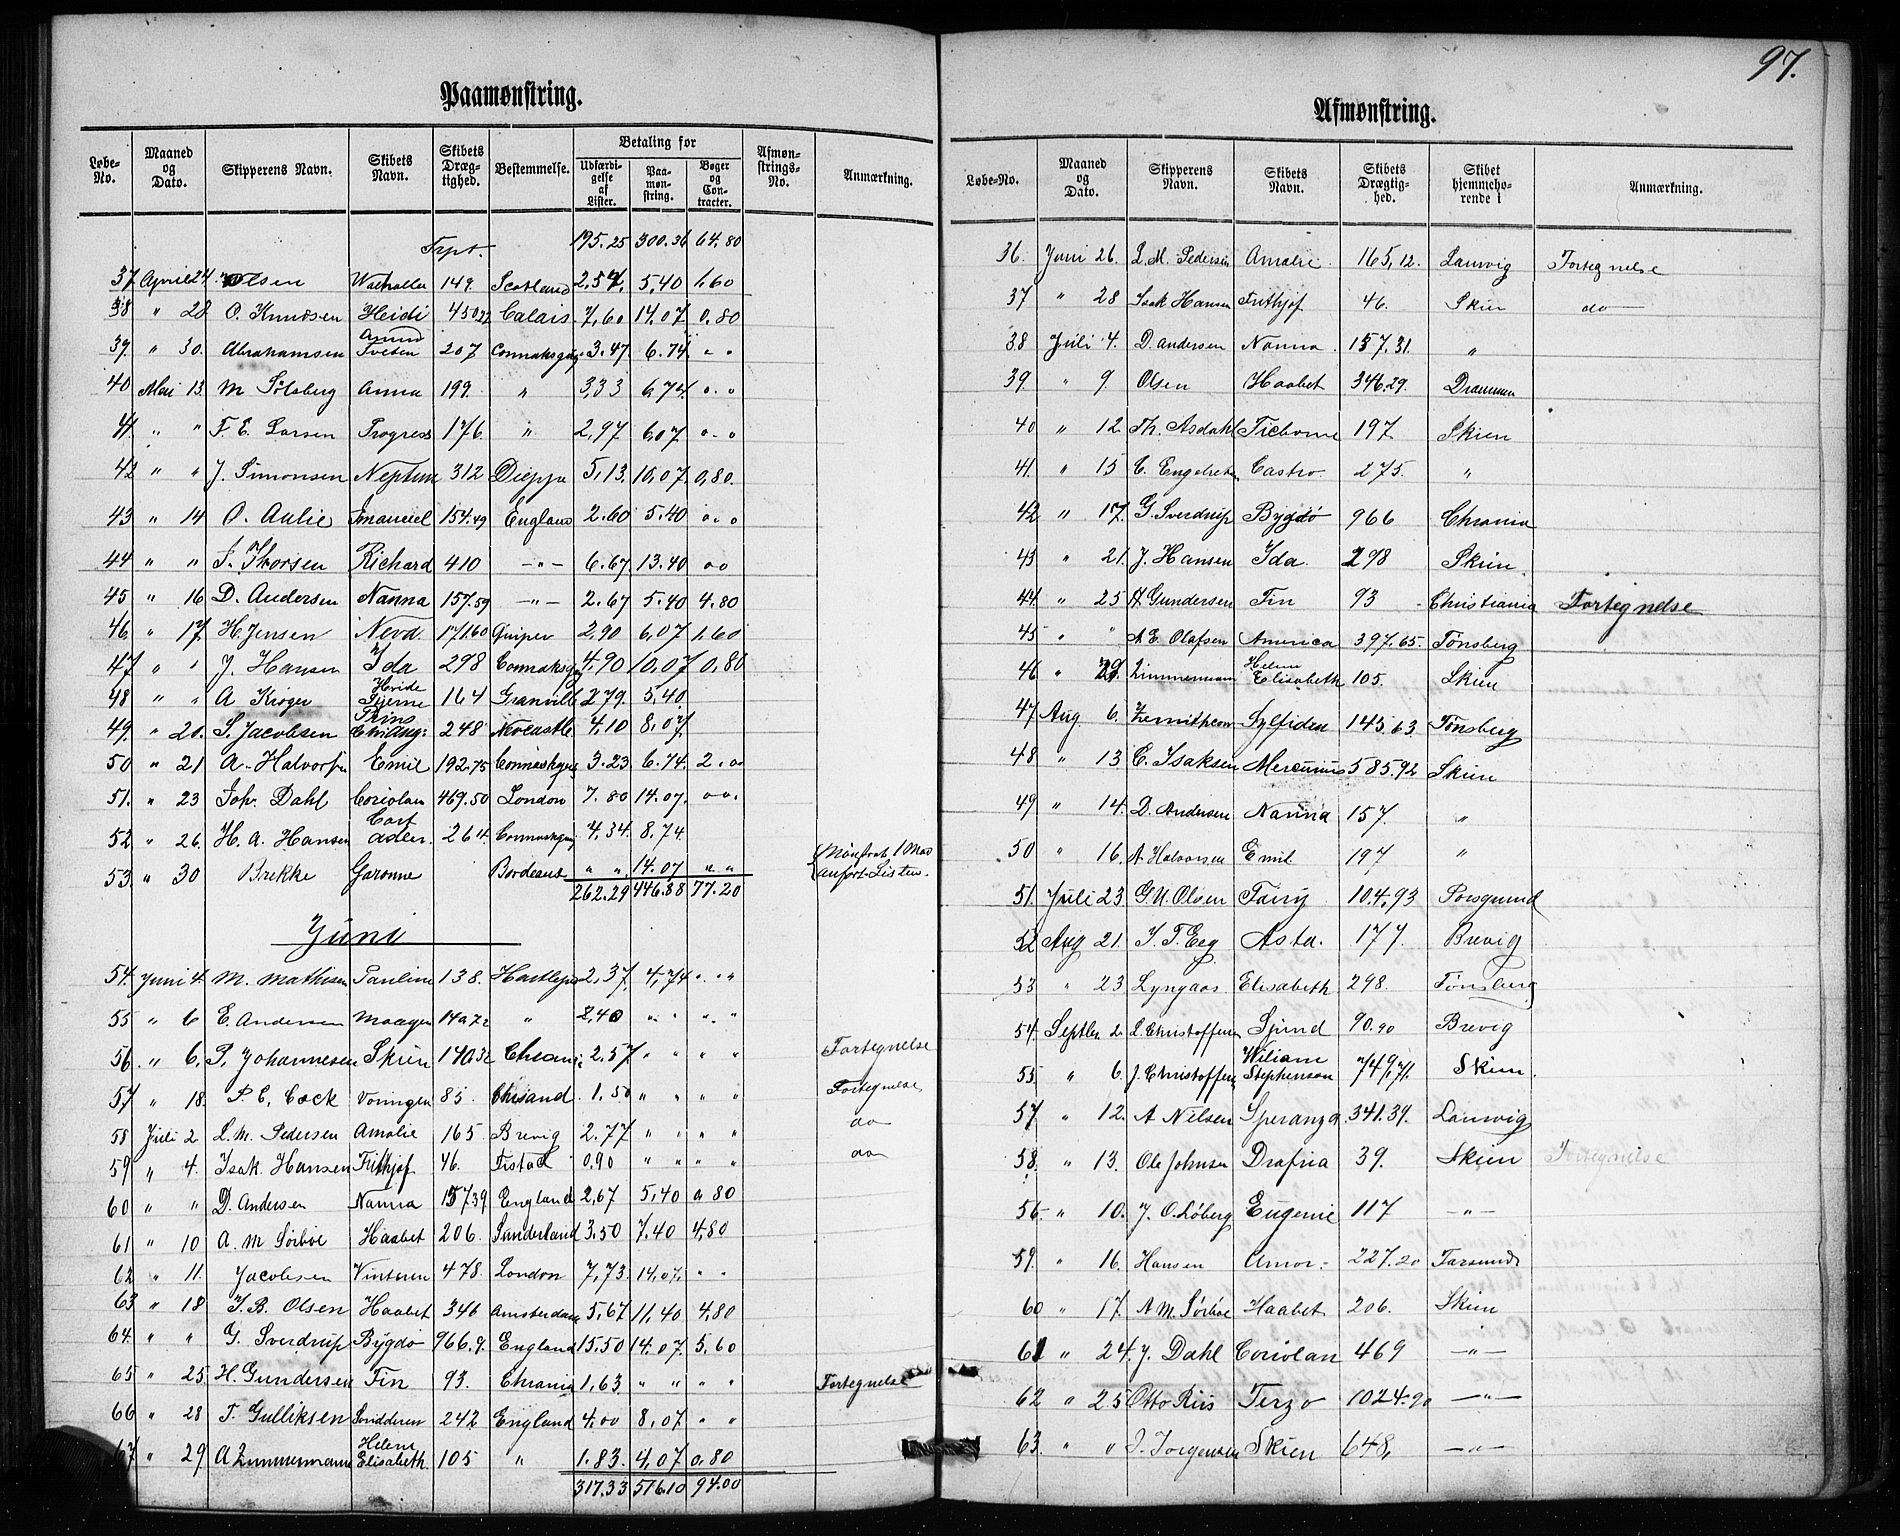 97.
Paamønstring.
Løbe-No. Maaned og Dato. Skipperens Navn. Skibets Navn. Skibets Drægtighed. Bestemmelse. Betaling for Udfærdigelse af Lister. Paamønstring. Bøger og Contracter. Afmønstrings-No. Anmærkning.
Frpt. 195.25 300.36 64.80
37 April 24. Olsen Walhalla 149. Scotland 2,57. 5,40 1,60
38 " 28 O. Knudsen Heidi 450 Calais 7,60 14.07 0.80
39. " 30. Abrahamsen Amund Tvesen 207 3.47 6.74 " "
40 Mai 13. M Solsberg Anna 199. " 3,33 6,74. " "
41. " " F. E. Larsen Progress 176. " 2,97 6,07 " "
42 " " J. Simonsen Neptun 312 Dieppe 5,13. 10,07 0,80.
43 " 14 O. Aalie Emanuel 154.49 England 2.60 5.40 " "
44 " " J. Thorsen Richard 410 -"- 6.67 13.40 " "
45 " 16 D. Andersen Nanna 157.59 -"- 2.67 5.40 4.80
46 " 17 H. Jensen 2,90 6,07 1,60
47 " " J. Hansen Ida 298 4,90 10,07 0,80
48 " " A Krøger Hvide Stjerne 164 Granville 2 79. 5,40
49. " 20. S. Jacobsen Prins Chr Aug: 248 Newcastle 4,10 8,07
50 " 21 A. Halvorsen Emil 192.75 3.23 6.74 2. "
51. " 23 Joh. Dahl Coriolan 469.50 London 7.80 14.07. " "
52 " 26. H. A. Hansen Cort Adler 264. 4,34. 8.74
53. " 30 Brekke Garonne Bordeaux " " 14.07 " " Mønstret 1 Mand
262.29 446.38 77.20
Juni
54. Juni 4. M. Mathisen Pauline 138. Hartlepool 2,37. 4,74 " "
55 " 6 E. Andersen Maagen 140 72 " 2,40 " " " "
56. " 6. P. Johannesen Skien 140 32 2,57 " " " " Fortegnelse
57 " 18. P. C. Cock 85 Chrsand 1.50 " " " " Fortegnelse
58 Juli 2 L. M. Pedersen Amalie 165 Brevig 2.77 " " " " do
59 " 4. Isak Hansen Frithjof 46. 0.90 " " " " do
60 " " D. Andersen Nanna 157 39 England 2,67 5,40 0 80
61 " 10 A. M Sörböe Haabet 206. Sunderland 3.50 7.40 4,80
62 " 11. Jacobsen Vinteren 478. London 7,73. 14.07. " "
63 " 18 J. B. Olsen Haabet 346 Amsterdam 5,67 11,40 4,80
64. " " G. Sverdrup Bygdø 966.9. England 15,50 14.07. 5,60
65 " 25 H. Gundersen Fin 93. Chrania 1,63 " " " " Fortegnelse
66 " 28 T. Gulliksen 242. England 4,00 8,07 " "
67 " 29 A Zimmermann Helene Elisabeth 105 " 1.83. 4,07 0,80
317.33 516.10 94.00
Afmønstring.
Løbe-No. Maaned og Dato. Skipperens Navn. Skibets Navn. Skibets Drægtighed. Skibet hjemmehørende i Anmærkning.
36. Juni 26. L. M. Pedersen Amalie 165,12. Laurvig Fortegnelse
37 " 28 Isak Hansen Frithjof 46. Skien do
38 Juli 4. D. Andersen Nanna 157.31. "
39 " 9. Olsen Haabet 346.29. Drammen
40 " 12. Th. Asdahl Tichborne 197. Skien
41. " 15 C. Engebretsen Castro 275. "
42 " 17. G. Sverdrup Bygdö 966 Chrania
43 " 21. J. Hansen Ida 298 Skien
44. " 25 H Gundersen Fin 93 Christiania Fortegnelse
45 " " A. E. Olafsen America 397,65. Tönsberg
46 " 29. Zimmermann Helene Elisabeth 105. Skien
47 Aug 6. Sylfiden 145.63. Tönsberg
48 " 13 C. Isaksen Mercurius 585.92 Skien
49 " 14. D. Andersen Nanna 157. "
50 " 16. A. Halvorsen Emil 197 "
51. Juli 23 G. U. Olsen Fairy 104,93 Porsgrund
52 Aug 21. J. T. Eeg Asta. 177. Brevig
53 " 23 Lyngaas Elisabeth 298. Tønsberg
54. Septbr 2. L. Christoffersen 90.90 Brevig
55 " 6. J. Christoffersen William Stephenson 749,71. Skien.
57 " 12. A Nilsen Speranza 341.39. Laurvig
58. " 13. Ole Johnsen Drafna 39. Skien Fortegnelse
56 " 10. J. O. Löberg Eugenie 117 -"-
59. " 16. Hansen Amor 227.20 Farsund
60 " 17. A M. Sörböe Haabet 206. Skien
61 " 24. J. Dahl Coriolan 469 -"-
62 " 25 Otto Riis Terzo 1024.90 -"-
63. " " J. Jorgensen Skien 648, -"-